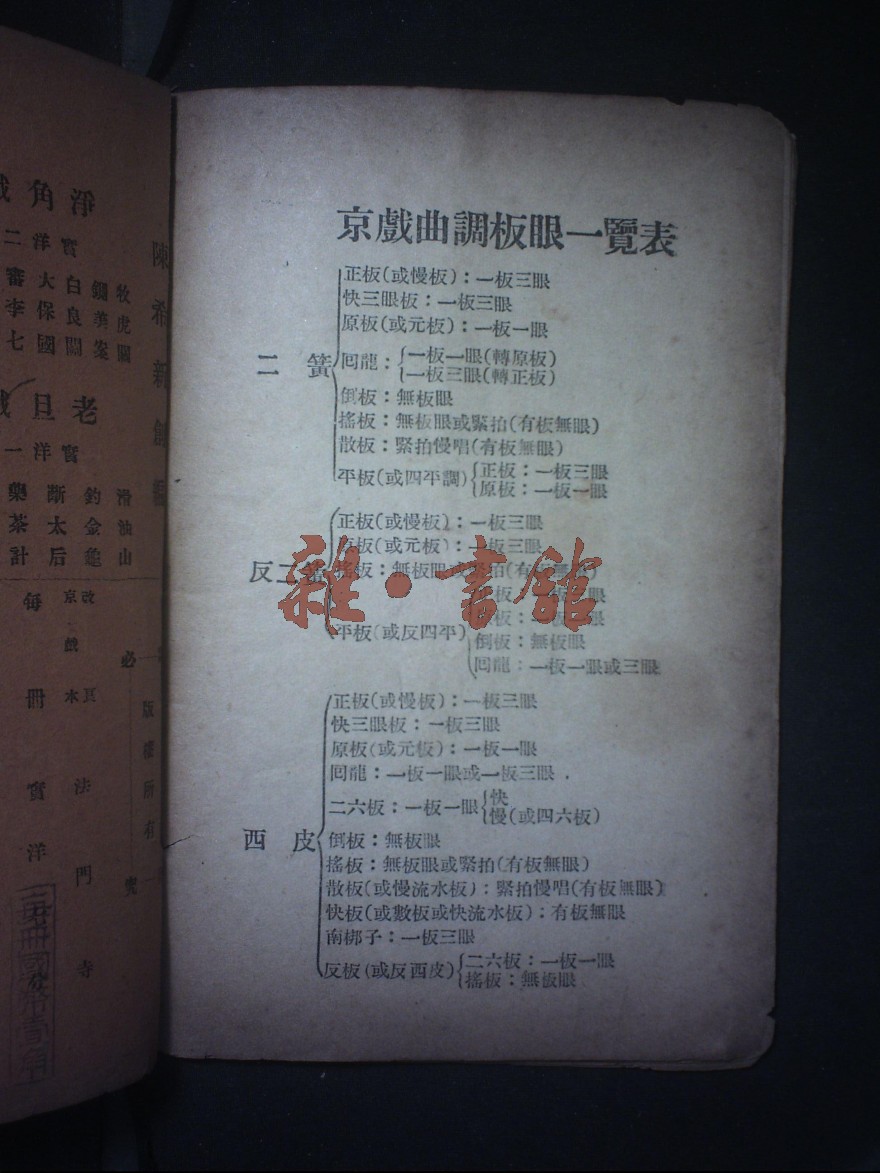 京戲曲調板眼一覽表
二簧
正板(或慢板)：一板三眼
快三眼板：一板三眼
原板(或元板)：一板一眼
囘龍：
一板一眼(轉原板)
一板三眼(轉正板)
倒板：無板眼
搖板：無板眼或緊拍(有板無眼)
散板：緊拍慢唱(有板無眼)
平板(或四平調)
正板：一板三眼
原板：一板一眼
反二簧
正板(或慢板)：一板三眼
原板(或元板)：一板三眼
搖板：無板眼或緊拍(有板無眼)
平板(或反四平)
倒板：無板眼
囘龍：一板一眼或三眼
西皮
正板(或慢板)：一板三眼
快三眼板：一板三眼
原板(或元板)：一板一眼
囘龍：一板一眼或一板三眼．
二六板：一板一眼
快
慢(或四六板)
倒板：無板眼
搖板：無板眼或緊拍(有板無眼)
散板(或慢流水板)：緊拍慢唱(有板無眼)
快板(或數板或快流水板)：有板無眼
南梆子：一板三眼
反板(或反西皮)
二六板：一板一眼
搖板：無板眼
雜·書館
陳希新
淨角戲
實洋二
牧虎關
鍘美案
白良關
大保國
審李七
老旦戲
實洋一
滑油山
釣金龜
斷太后
藥茶計
版權所有
必究
改良
京戲
法門寺
每冊實洋